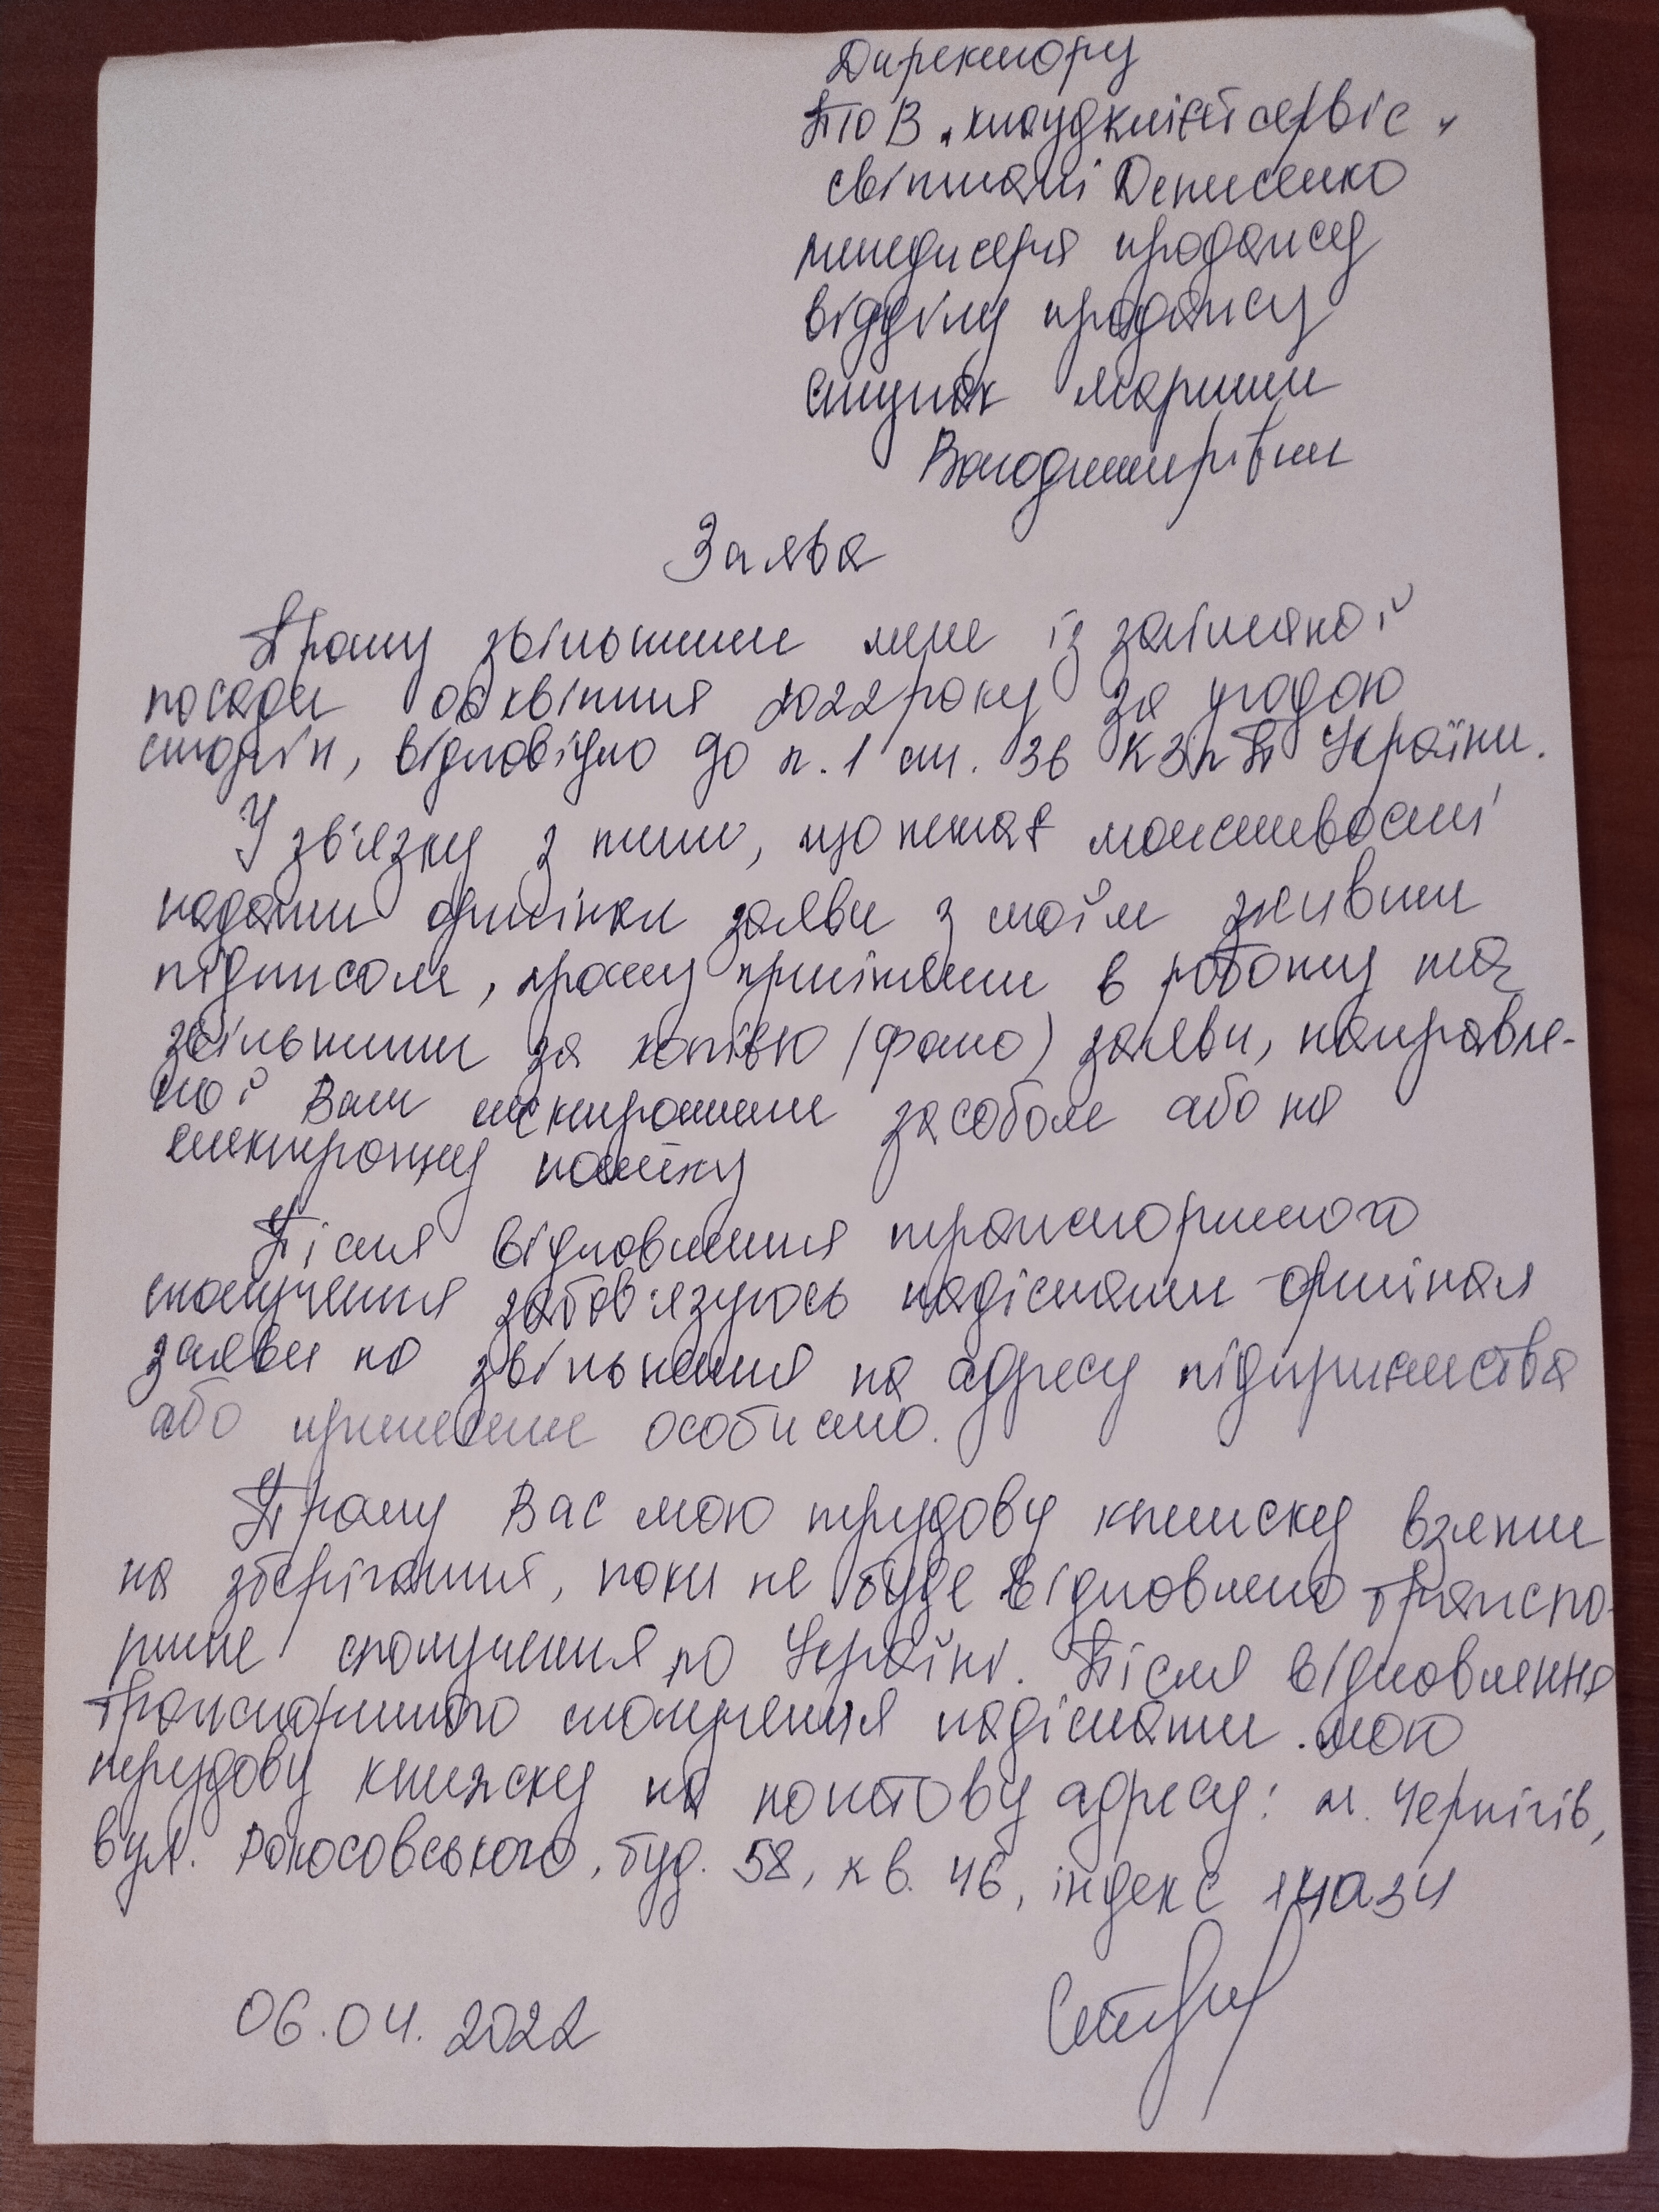 Директору
ТОВ "Клаудклінєтсервіс"
Світлані Денисенко
менеджера продажу
відділу продажу
Ступак Марини
Володимирівни
Заява
Прошу звільнити мене із займаної
посади 06 квітня 2022 року за угодою
сторін, відповідно до п. 1 ст. 36 КЗпП України.
У зв'язку з тим, що немає можливості
надати оригінал заяви з моїм живим
підписом, прошу прийняти в роботу та
звільнити за копією (фото) заяви, направле-
ної Вам електронним засобом або на
електронну пошту
Після відновлення транспортного
сполучення зобов'язуюсь надіслати оригінал
заяви на звільнення на адресу підприємства
або принести особисто.
Прошу Вас мою трудову книжку взяти
на зберігання, поки не буде відновлено транспо-
ртне сполучення по Україні. Після відновлення
транспортного сполучення надіслати мою
трудову книжку на поштову адресу: м. Чернігів,
вул. Рокосовського, буд. 58, кв. 46, індекс 14034
06.04.2022